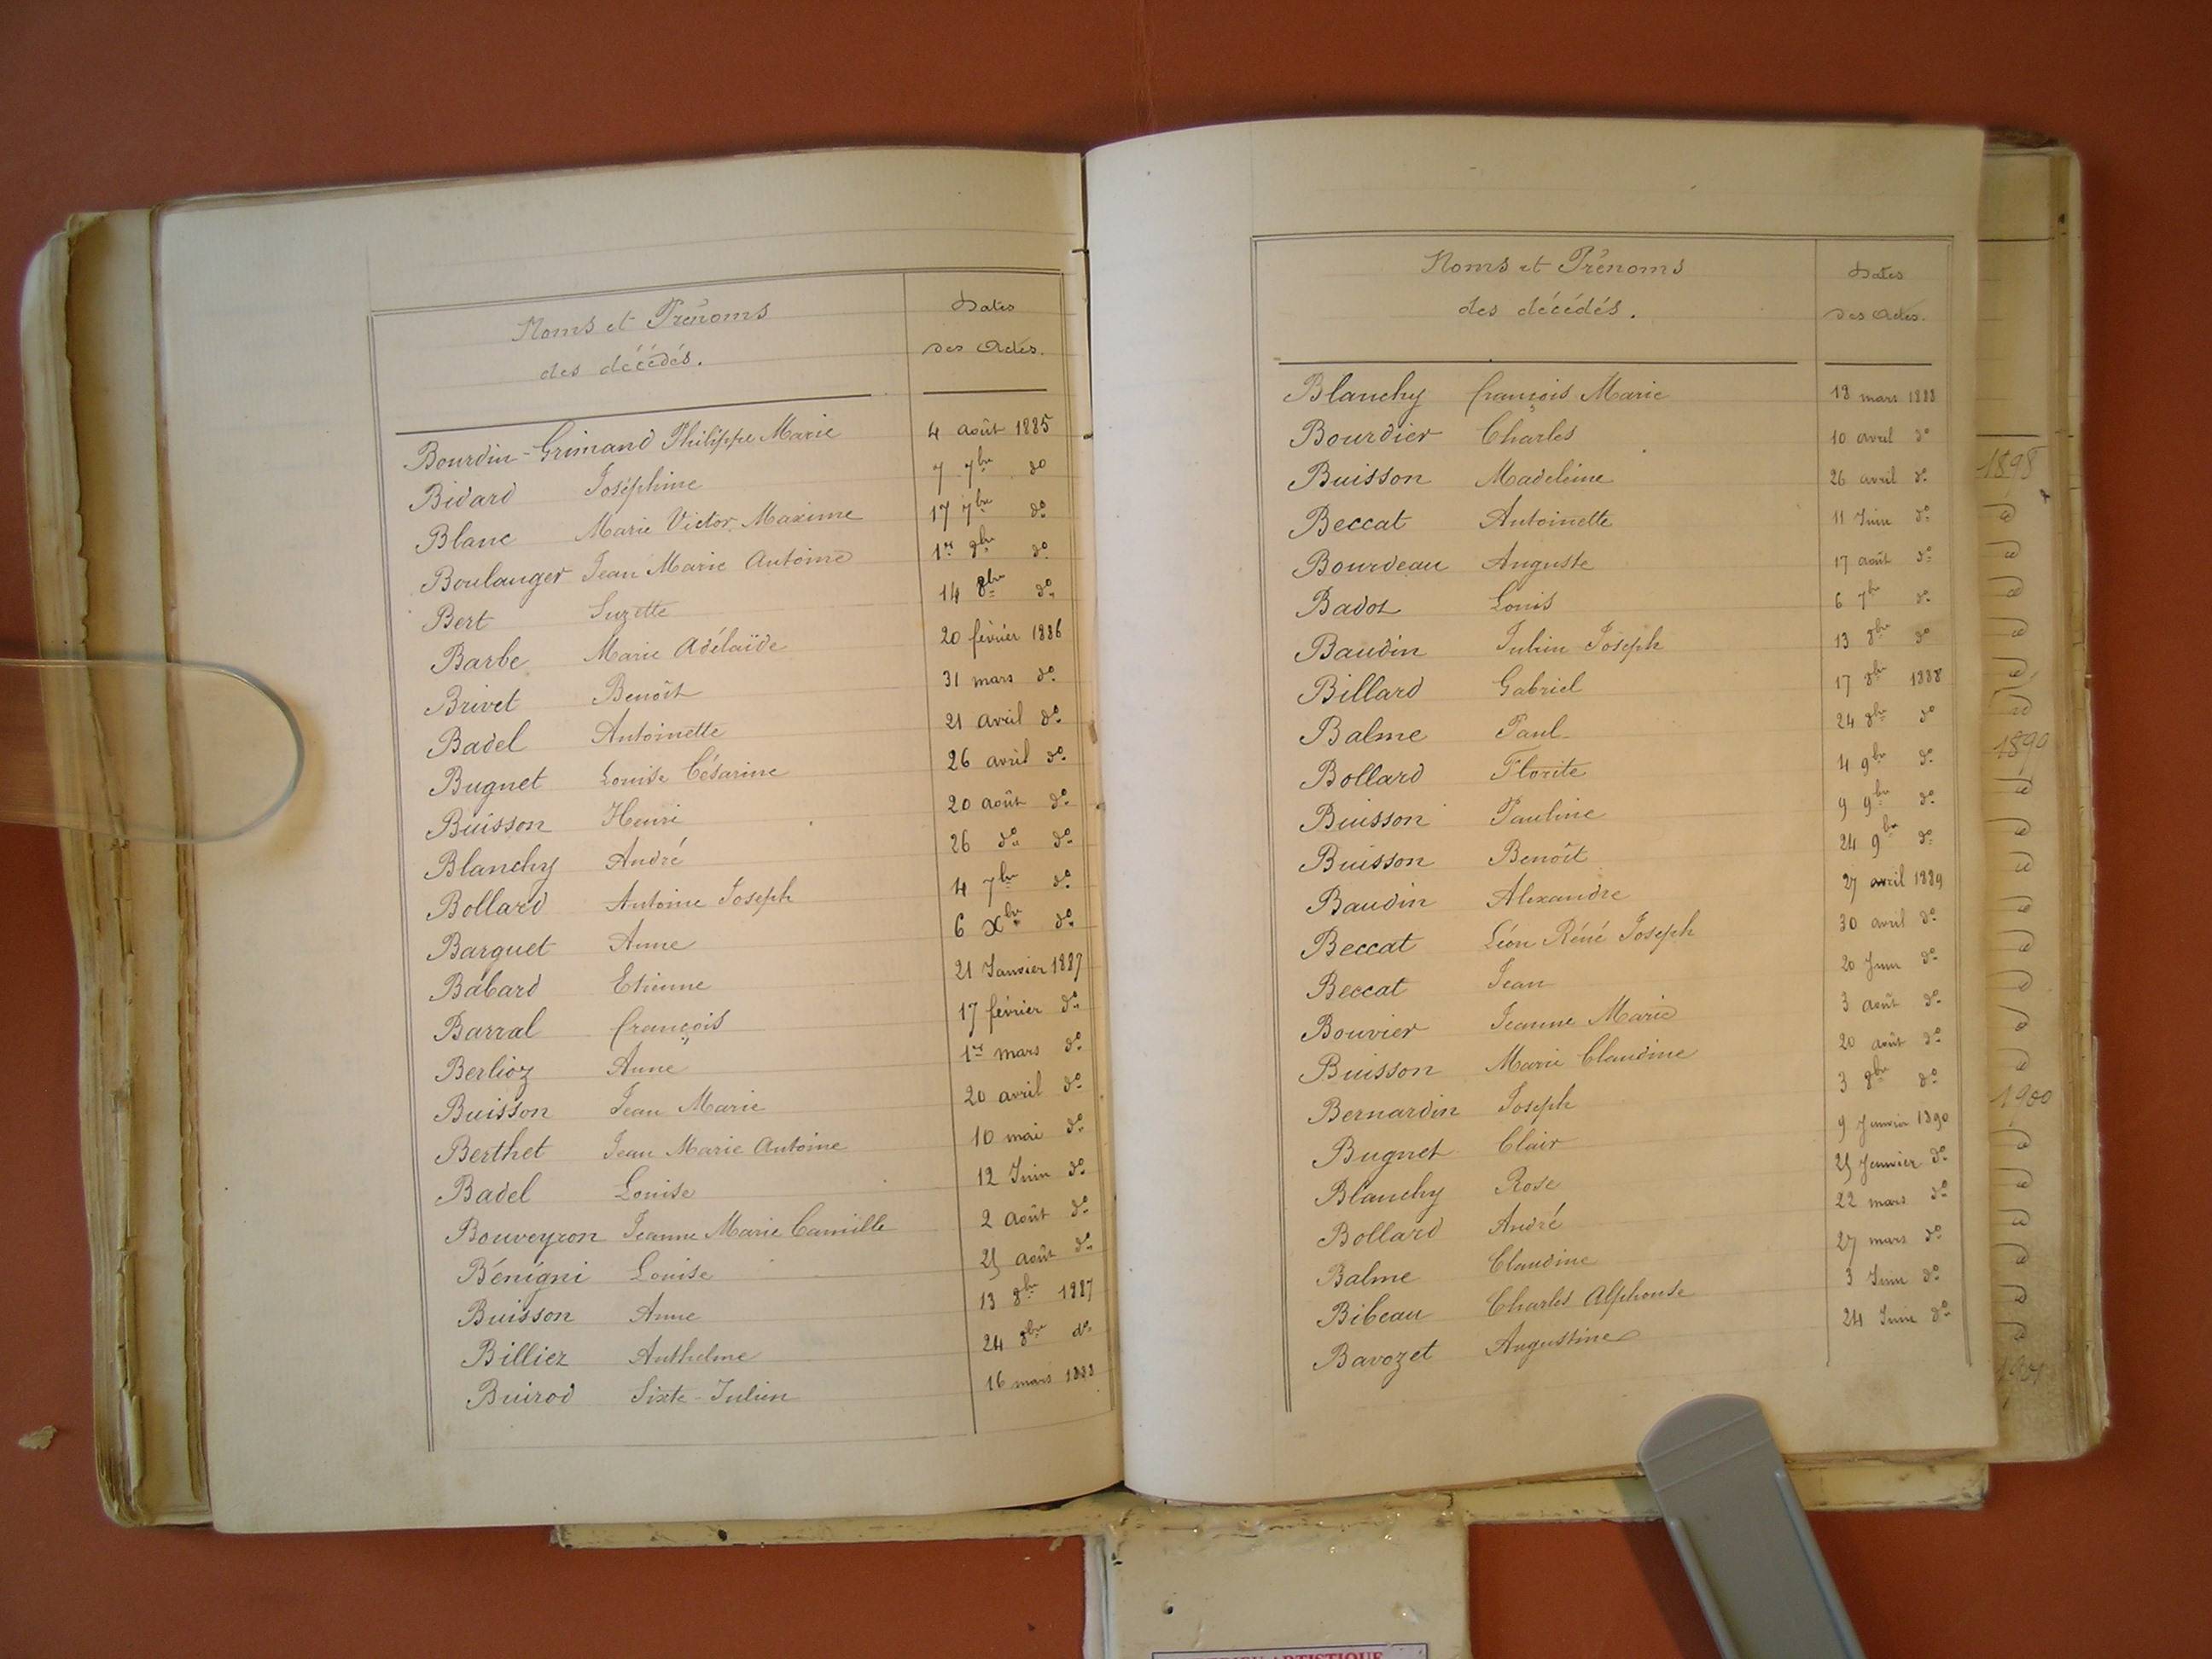 Noms et Prénoms
des décédés.
Dates
des Actes.
Bourdin-Grimand Philippe Marie 4 août 1885
Bidard Joséphine 7 7bre do
Blanc Marie Victor Maxime 17 7bre do
Boulanger Jean Marie Antoine 1er 8bre do
Bert Suzette 14 8bre do
Barbe Marie Adélaïde 20 février 1886
Brivet Benoît 31 mars do
Badel Antoinette 21 avril do
Bugnet Louise Césarine 26 avril do
Buisson Henri 20 août do
Blanchy André 26 do do
Bollard Antoine Joseph 4 7bre do
Barguet Anne 6 Xbre do
Babard Etienne 21 Janvier 1887
Barral françois 17 février do
Berlioz Anne 1er mars do
Buisson Jean Marie 20 avril do
Berthet Jean Marie Antoine 10 mai do
Badel Louise 12 Juin do
Bouveyron Jeanne Marie Camille 2 août do
Bénigni Louise 25 août do
Buisson Anne 13 8bre 1887
Billiez Anthelme 24 8bre do
Buirod Sixte-Julien 16 mars 1888
Noms et Prénoms
des décédés.
Dates
des Actes.
Blanchy françois Marie 18 mars 1888
Bourdier Charles 10 avril do
Buisson Madeleine 26 avril do
Beccat Antoinette 11 Juin do
Bourdeau Auguste 17 août do
Badot Louis 6 7bre do
Baudin Julien Joseph 13 8bre do
Billard Gabriel 17 8bre 1888
Balme Paul 24 8bre do
Bollard Florite 4 9bre do
Buisson Pauline 9 9bre do
Buisson Benoît 24 9bre do
Baudin Alexandre 27 avril 1889
Beccat Léon Réné Joseph 30 avril do
Beccat Jean 20 Juin do
Bouvier Jeanne Marie 3 août do
Buisson Marie Claudine 20 août do
Bernardin Joseph 3 8bre do
Bugnet Clair 9 Janvier 1890
Blanchy Rose 25 Janvier do
Bollard André 22 mars do
Balme Claudine 27 mars do
Bibeau Charles Alphonse 3 Juin do
Bavozet Augustine 24 Juin do
1898
1900